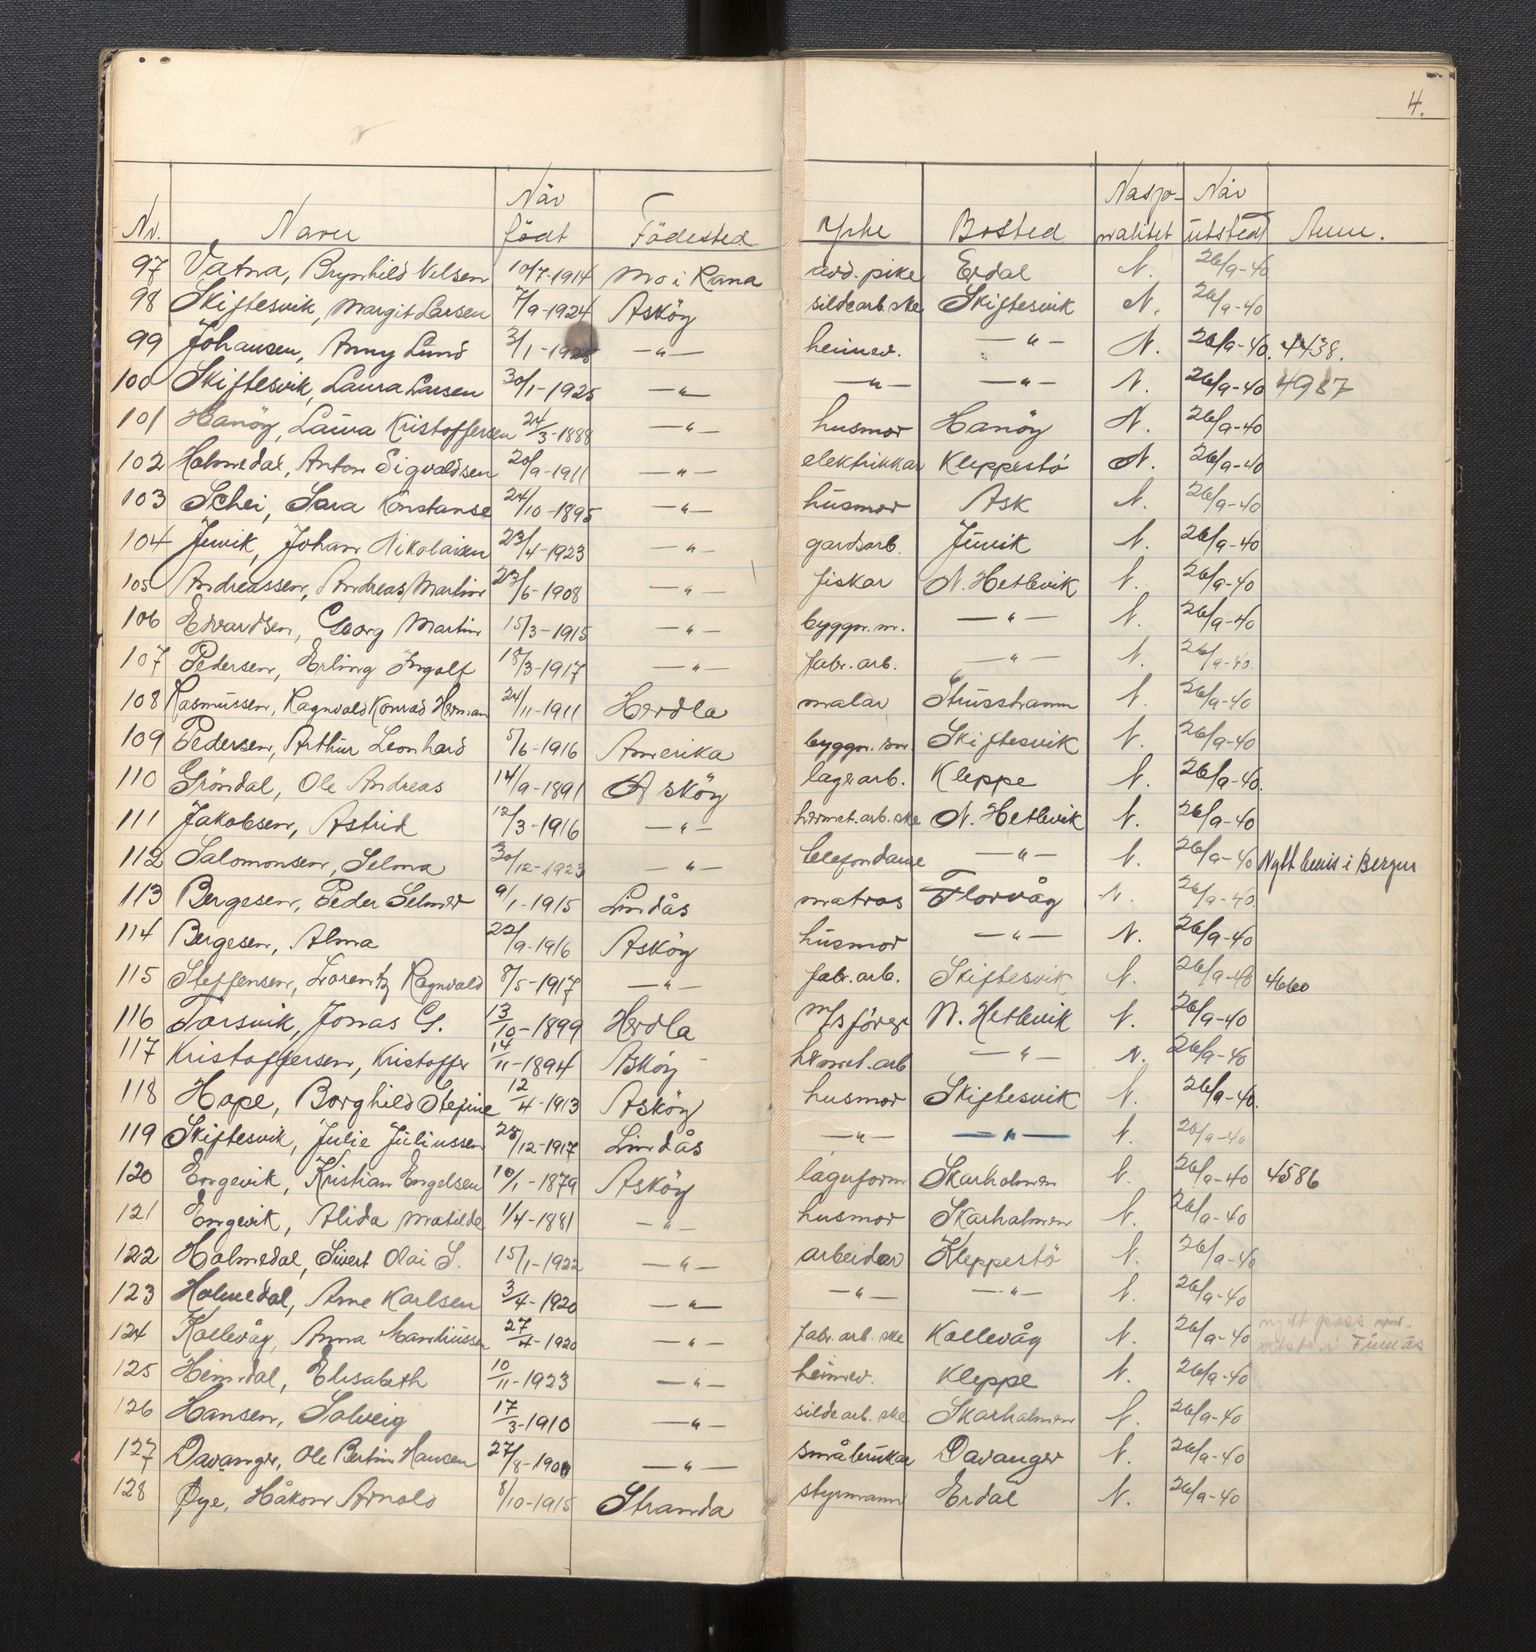 4.
Nr. Navn Når födt Födested Yrke Bosted Nasjo-nalitet Når utstedt Anm.
97 Vatna, Brynhild Nilsen 10/7-1914 Mo i Rana arb. pike Erdal N. 26/9-40
98 Skiftesvik, Margit Larsen 7/9-1924 Asköy sildearb.ske Skiftesvik N. 26/9-40
99 Johansen, Anny Lund 3/1-1925 -"- heimev. -"- N. 26/9-40. 4438.
100 Skiftesvik, Laura Larsen 30/1-1925 -"- -"- -"- N. 26/9-40 4987
101 Hanöy, Laura Kristoffersen 24/3-1888 -"- husmor Hanöy N. 26/9-40
102 Holmedal, Anton Sigvaldsen 20/9-1911 -"- elektrikkar Kleppestö N. 26/9-40
103 Schei, Sara Konstanse 24/10-1895 -"- husmor Ask N. 26/9-40
104 Juvik, Johan Nikolaisen 23/4-1923 -"- gardsarb. Juvik N. 26/9-40
105 Andreassen, Andreas Martin 23/6-1908 -"- fiskar N. Hetlevik N. 26/9-40
106 Edvardsen, Georg Martin 15/3-1915 -"- byggn.m. -"- N. 26/9-40
107 Pedersen, Erling Ingolf 18/3-1917 -"- fabr.arb. -"- N. 26/9-40.
108 Rasmussen, Ragnvald Konrad Herman 24/11-1911 Herdla malar Strusshamn N. 26/9-40
109 Pedersen, Arthur Leonhard 5/6-1916 Amerika byggn. sn. Skiftesvik N. 26/9-40
110 Gröndal, Ole Andreas 14/9-1891 Asköy lagerarb. Kleppe N. 26/9-40.
111 Jakobsen, Astrid 12/3-1916 -"- hermet.arb.ske N. Hetlevik N. 26/9-40
112 Salomonsen, Selma 30/12-1923 -"- telefondame -"- N. 26/9-40 Nytt bevis i Bergen
113 Bergesen, Peder Selmer 9/1-1915 Lindås matros Florvåg N. 26/9-40
114 Bergesen, Alma 22/9-1916 Asköy husmor -"- N. 26/9-40
115 Steffensen, Lorentz Ragnvald 8/5-1917 -"- fabr.arb. Skiftesvik N. 26/9-40 4660
116 Torsvik, Jonas G. 13/10-1899 Herdla m/s förer N. Hetlevik N. 26/9-40
117 Kristoffersen, Kristoffer 14/11-1894 Asköy hermet.arb -"- N. 26/9-40
118 Hope, Borghild Stefine 12/4-1913 Asköy husmor Skiftesvik N. 26/9-40.
119 Skiftesvik, Julie Juliussen 28/12-1917 Lindås -"- -"- N. 26/9-40
120 Engevik, Kristian Engelsen 10/1-1879 Asköy lagerform Skarholmen N. 26/9-40 4586
121 Engevik, Alida Matilde 1/4-1881 -"- husmor Skarholmen N. 26/9-40
122 Holmedal, Sivert Olai S. 15/1-1922 -"- arbeidar Kleppestö N. 26/9-40
123 Holmedal, Arne Karlsen 3/4-1920 -"- -"- -"- N. 26/9-40
124 Kollevåg, Anna Mandiussen 27/4-1920 -"- fabr.arb.ske Kollevåg N. 26/9-40 nytt pass utst. i Fusa
125 Heimdal, Elisabeth 10/11-1923 -"- heimev. Kleppe N. 26/9-40
126 Hansen, Solveig 17/3-1910 -"- sildearb.ske Skarholmen N. 26/9-40
127 Davanger, Ole Bertin Hansen 27/8-1900 -"- småbrukar Davanger N. 26/9-40
128 Øye, Håkon Arnold 8/10-1915 Stranda styrmann Erdal N. 26/9-40